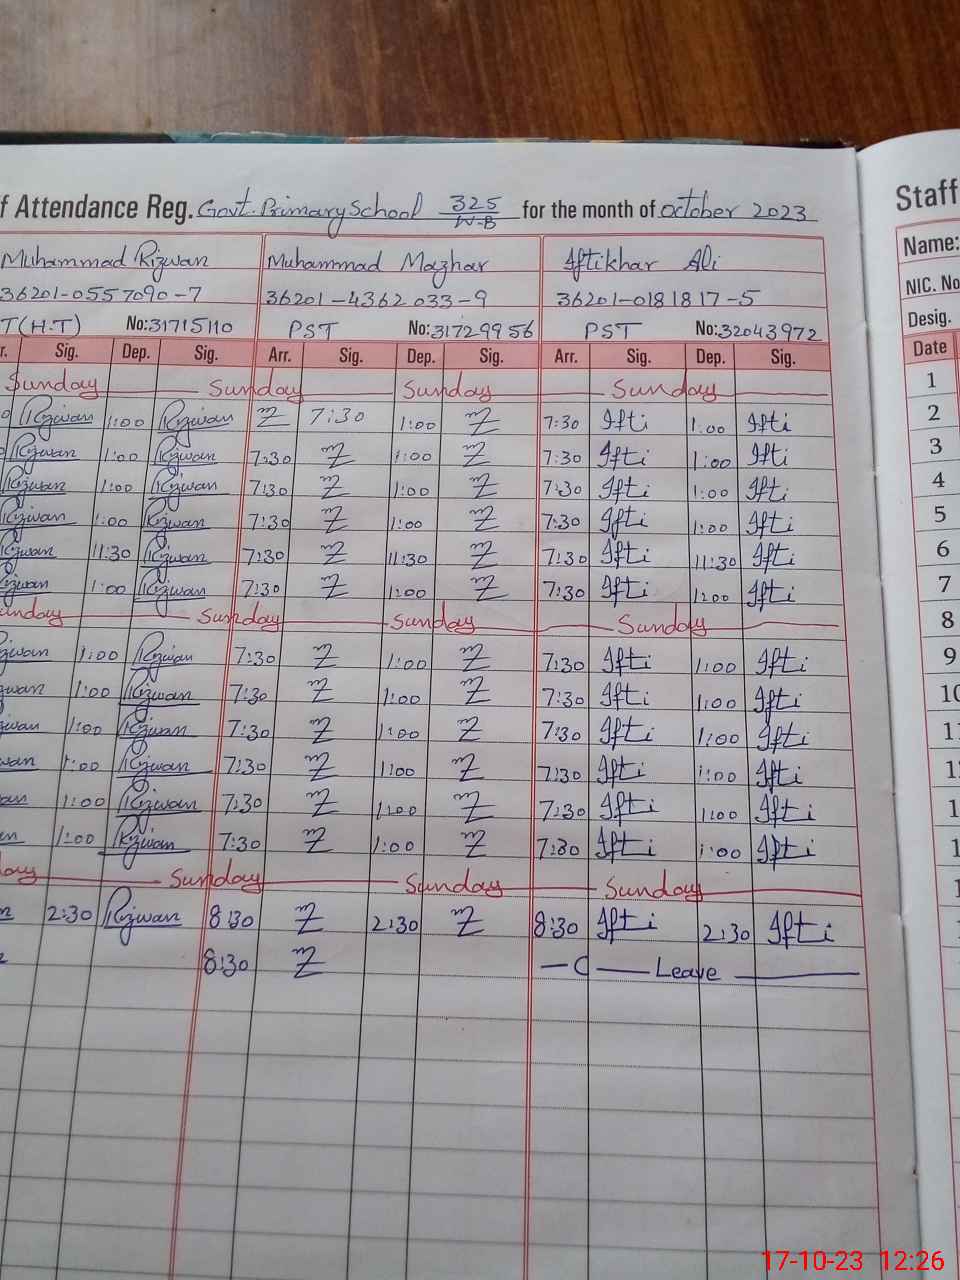 f Attendance Reg. Govt. Primary School 325/W-B for the month of october 2023
Muhammad Rizwan Muhammad Mazhar Iftikhar Ali
36201-0557090-7 36201-4362033-9 36201-0181817-5
T(H.T) No:31715110 PST No:31729956 PST No:32043972
r. Sig. Dep. Sig. Arr. Sig. Dep. Sig. Arr. Sig. Dep. Sig.
Sunday Sunday Sunday Sunday
0 Rizwan 1:00 Rizwan 7:30 1:00 7:30 Ifti 1:00 Ifti
Rizwan 1:00 Rizwan 7:30 1:00 7:30 Ifti 1:00 Ifti
Rizwan 1:00 Rizwan 7:30 1:00 7:30 Ifti 1:00 Ifti
Rizwan 1:00 Rizwan 7:30 1:00 7:30 Ifti 1:00 Ifti
Rizwan 11:30 Rizwan 7:30 11:30 7:30 Ifti 11:30 Ifti
Rizwan 1:00 Rizwan 7:30 1:00 7:30 Ifti 1:00 Ifti
unday Sunday Sunday Sunday
zwan 1:00 Rizwan 7:30 1:00 7:30 Ifti 1:00 Ifti
zwan 1:00 Rizwan 7:30 1:00 7:30 Ifti 1:00 Ifti
zwan 1:00 Rizwan 7:30 1:00 7:30 Ifti 1:00 Ifti
wan 1:00 Rizwan 7:30 1:00 7:30 Ifti 1:00 Ifti
an 1:00 Rizwan 7:30 1:00 7:30 Ifti 1:00 Ifti
en 1:00 Rizwan 7:30 1:00 7:30 Ifti 1:00 Ifti
day Sunday Sunday Sunday
n 2:30 Rizwan 8:30 2:30 8:30 Ifti 2:30 Ifti
8:30 C Leave
Staff
Name:
NIC. No
Desig.
Date
1
2
3
4
5
6
7
8
9
10
11
1
1
1
1
1
17-10-23 12:26